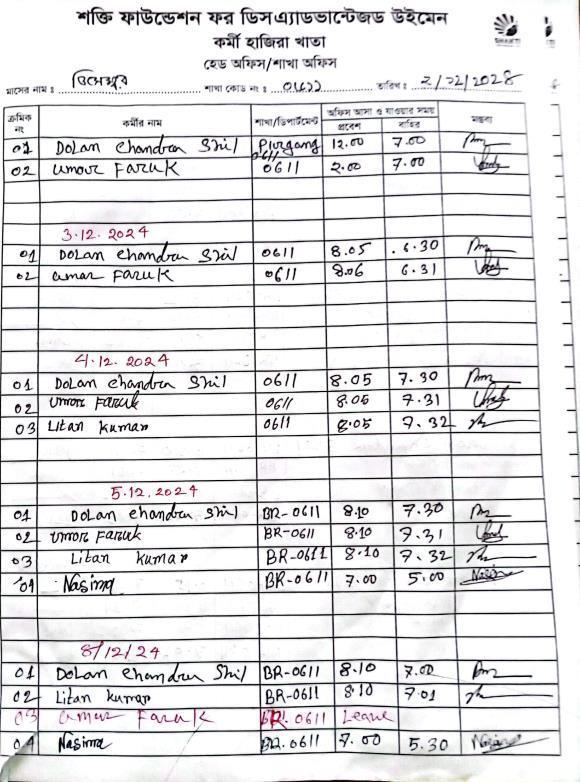 শক্তি ফাউন্ডেশন ফর ডিসএ্যাডভান্টেজড উইমেন
কর্মী হাজিরা খাতা
হেড অফিস/শাখা অফিস
মাসের নাম : ডিসেম্বর শাখা কোড নং : ০৬১১ তারিখ : 2/12/2024
ক্রমিক নং কর্মীর নাম শাখা/ডিপার্টমেন্ট অফিস আসা ও যাওয়ার সময় মন্তব্য
প্রবেশ বাহির
01 Dolan Chandra Shil Pirgang 0611 12.00 7.00
02 Umor Faruk 0611 2.00 7.00
3.12.2024
01 Dolan Chandra Shil 0611 8.05 6.30
02 Umar Faruk 0611 8.06 6.31
4.12.2024
01 Dolan Chandra Shil 0611 8.05 7.30
02 Umor Faruk 0611 8.06 7.31
03 Litan Kumar 0611 8.05 7.32
5.12.2024
01 Dolan Chandra Shil BR-0611 8.10 7.30
02 Umor Faruk BR-0611 8.10 7.31
03 Litan Kumar BR-0611 8.10 7.32
01 Nasima BR-0611 7.00 5.00 Nasima
8/12/24
01 Dolan Chandra Shil BR-0611 8.10 7.00
02 Litan Kumar BR-0611 8.10 7.01
03 Umar Faruk BR. 0611 Leave
04 Nasima BR. 0611 7.00 5.30 Nasima